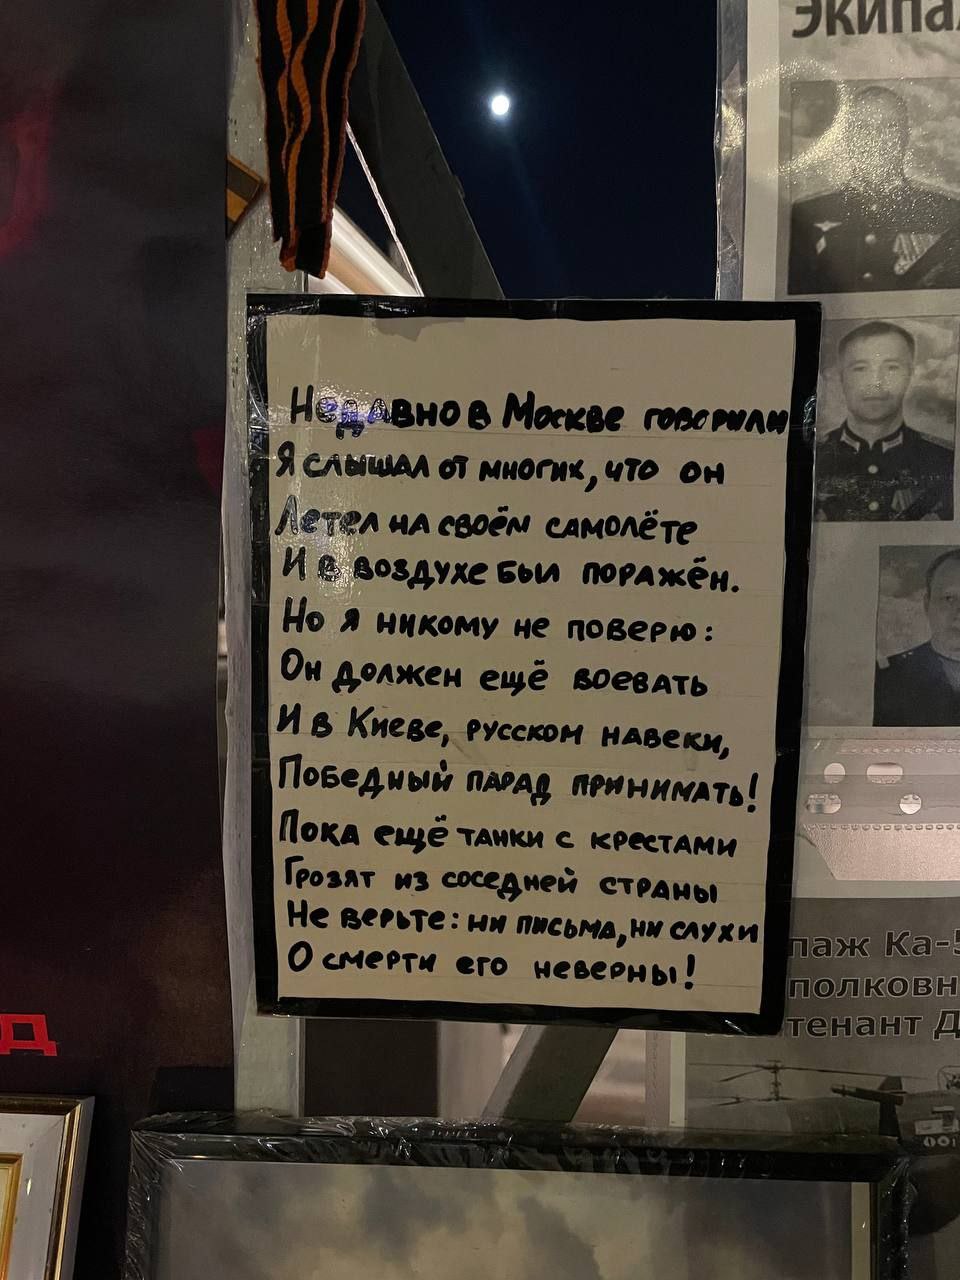 Экипа
Недавно в Москве говорили
Я слышал от многих, что он
Летел на своём самолёте
И в воздухе был поражён.
Но я никому не поверю:
Он должен ещё воевать
И в Киеве, русском навеки,
Победный парад принимать!
Пока ещё танки с крестами
Грозят из соседней страны
Не верьте: ни письма, ни слухи
О смерти его неверны!
паж Ка-5
полковн
тенант Д
Д